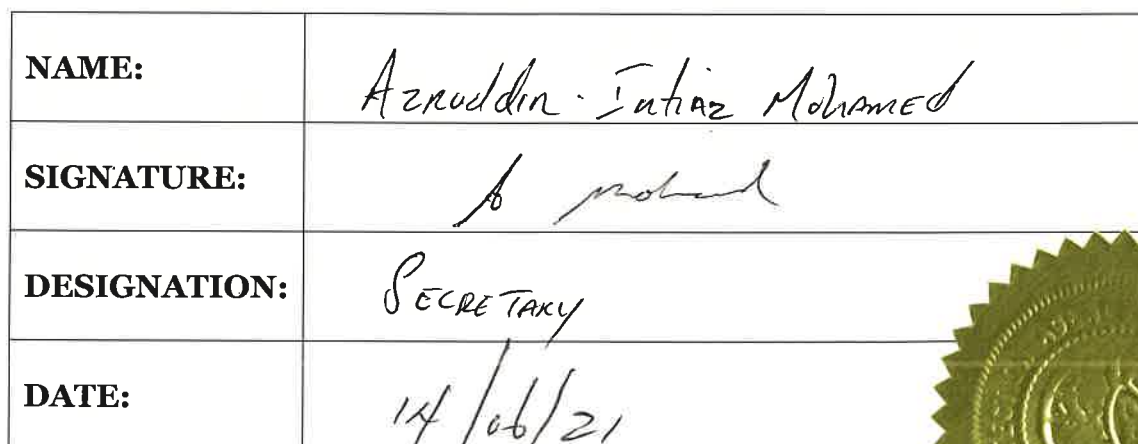 NAME: Azruddin. Intiaz Mohamed
SIGNATURE: A Mohamed
DESIGNATION: SECRETARY
DATE: 14/06/21